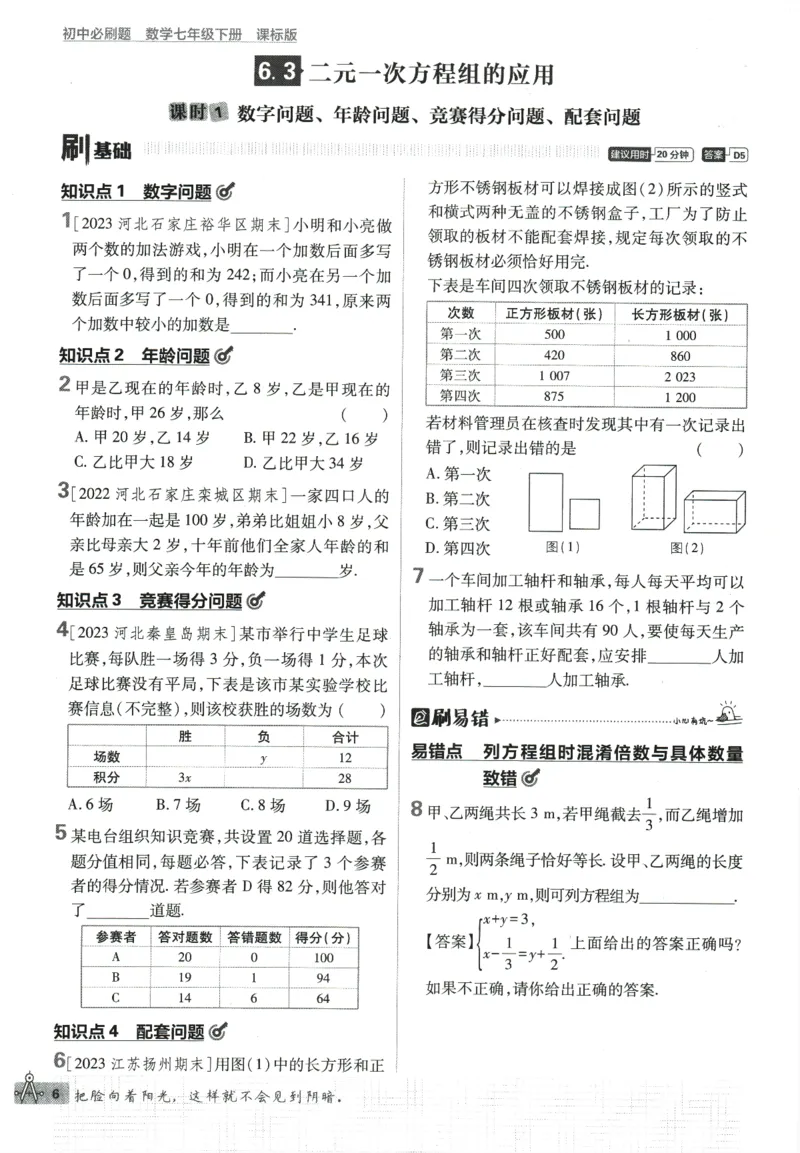 初中必刷题 数学七年级下册 课标版
6.3 二元一次方程组的应用
课时1 数字问题、年龄问题、竞赛得分问题、配套问题
刷基础 建议用时 20分钟 答案 D5
知识点1 数字问题
1[2023河北石家庄裕华区期末]小明和小亮做
两个数的加法游戏,小明在一个加数后面多写
了一个0,得到的和为242;而小亮在另一个加
数后面多写了一个0,得到的和为341,原来两
个加数中较小的加数是________.
知识点2 年龄问题
2 甲是乙现在的年龄时,乙8岁,乙是甲现在的
年龄时,甲26岁,那么 ( )
A. 甲20岁,乙14岁 B. 甲22岁,乙16岁
C. 乙比甲大18岁 D. 乙比甲大34岁
3[2022河北石家庄栾城区期末]一家四口人的
年龄加在一起是100岁,弟弟比姐姐小8岁,父
亲比母亲大2岁,十年前他们全家人年龄的和
是65岁,则父亲今年的年龄为________岁.
知识点3 竞赛得分问题
4[2023河北秦皇岛期末]某市举行中学生足球
比赛,每队胜一场得3分,负一场得1分,本次
足球比赛没有平局,下表是该市某实验学校比
赛信息(不完整),则该校获胜的场数为( )
胜 负 合计
场数 y 12
积分 3x 28
A. 6场 B. 7场 C. 8场 D. 9场
5 某电台组织知识竞赛,共设置20道选择题,各
题分值相同,每题必答,下表记录了3个参赛
者的得分情况. 若参赛者D得82分,则他答对
了________道题.
参赛者 答对题数 答错题数 得分(分)
A 20 0 100
B 19 1 94
C 14 6 64
知识点4 配套问题
6[2023江苏扬州期末]用图(1)中的长方形和正
方形不锈钢板材可以焊接成图(2)所示的竖式
和横式两种无盖的不锈钢盒子,工厂为了防止
领取的板材不能配套焊接,规定每次领取的不
锈钢板材必须恰好用完.
下表是车间四次领取不锈钢板材的记录:
次数 正方形板材(张) 长方形板材(张)
第一次 500 1 000
第二次 420 860
第三次 1 007 2 023
第四次 875 1 200
若材料管理员在核查时发现其中有一次记录出
错了,则记录出错的是 ( )
A. 第一次
B. 第二次
C. 第三次
D. 第四次
图(1) 图(2)
7 一个车间加工轴杆和轴承,每人每天平均可以
加工轴杆12根或轴承16个,1根轴杆与2个
轴承为一套,该车间共有90人,要使每天生产
的轴承和轴杆正好配套,应安排________人加
工轴杆,________人加工轴承.
刷易错 小心有坑~
易错点 列方程组时混淆倍数与具体数量
致错
8 甲、乙两绳共长3 m,若甲绳截去1/3,而乙绳增加
1/2 m,则两条绳子恰好等长. 设甲、乙两绳的长度
分别为x m,y m,则可列方程组为____________.
【答案】{x+y=3, x-1/3=y+1/2. 上面给出的答案正确吗?
如果不正确,请你给出正确的答案.
6 把脸向着阳光,这样就不会见到阴暗.